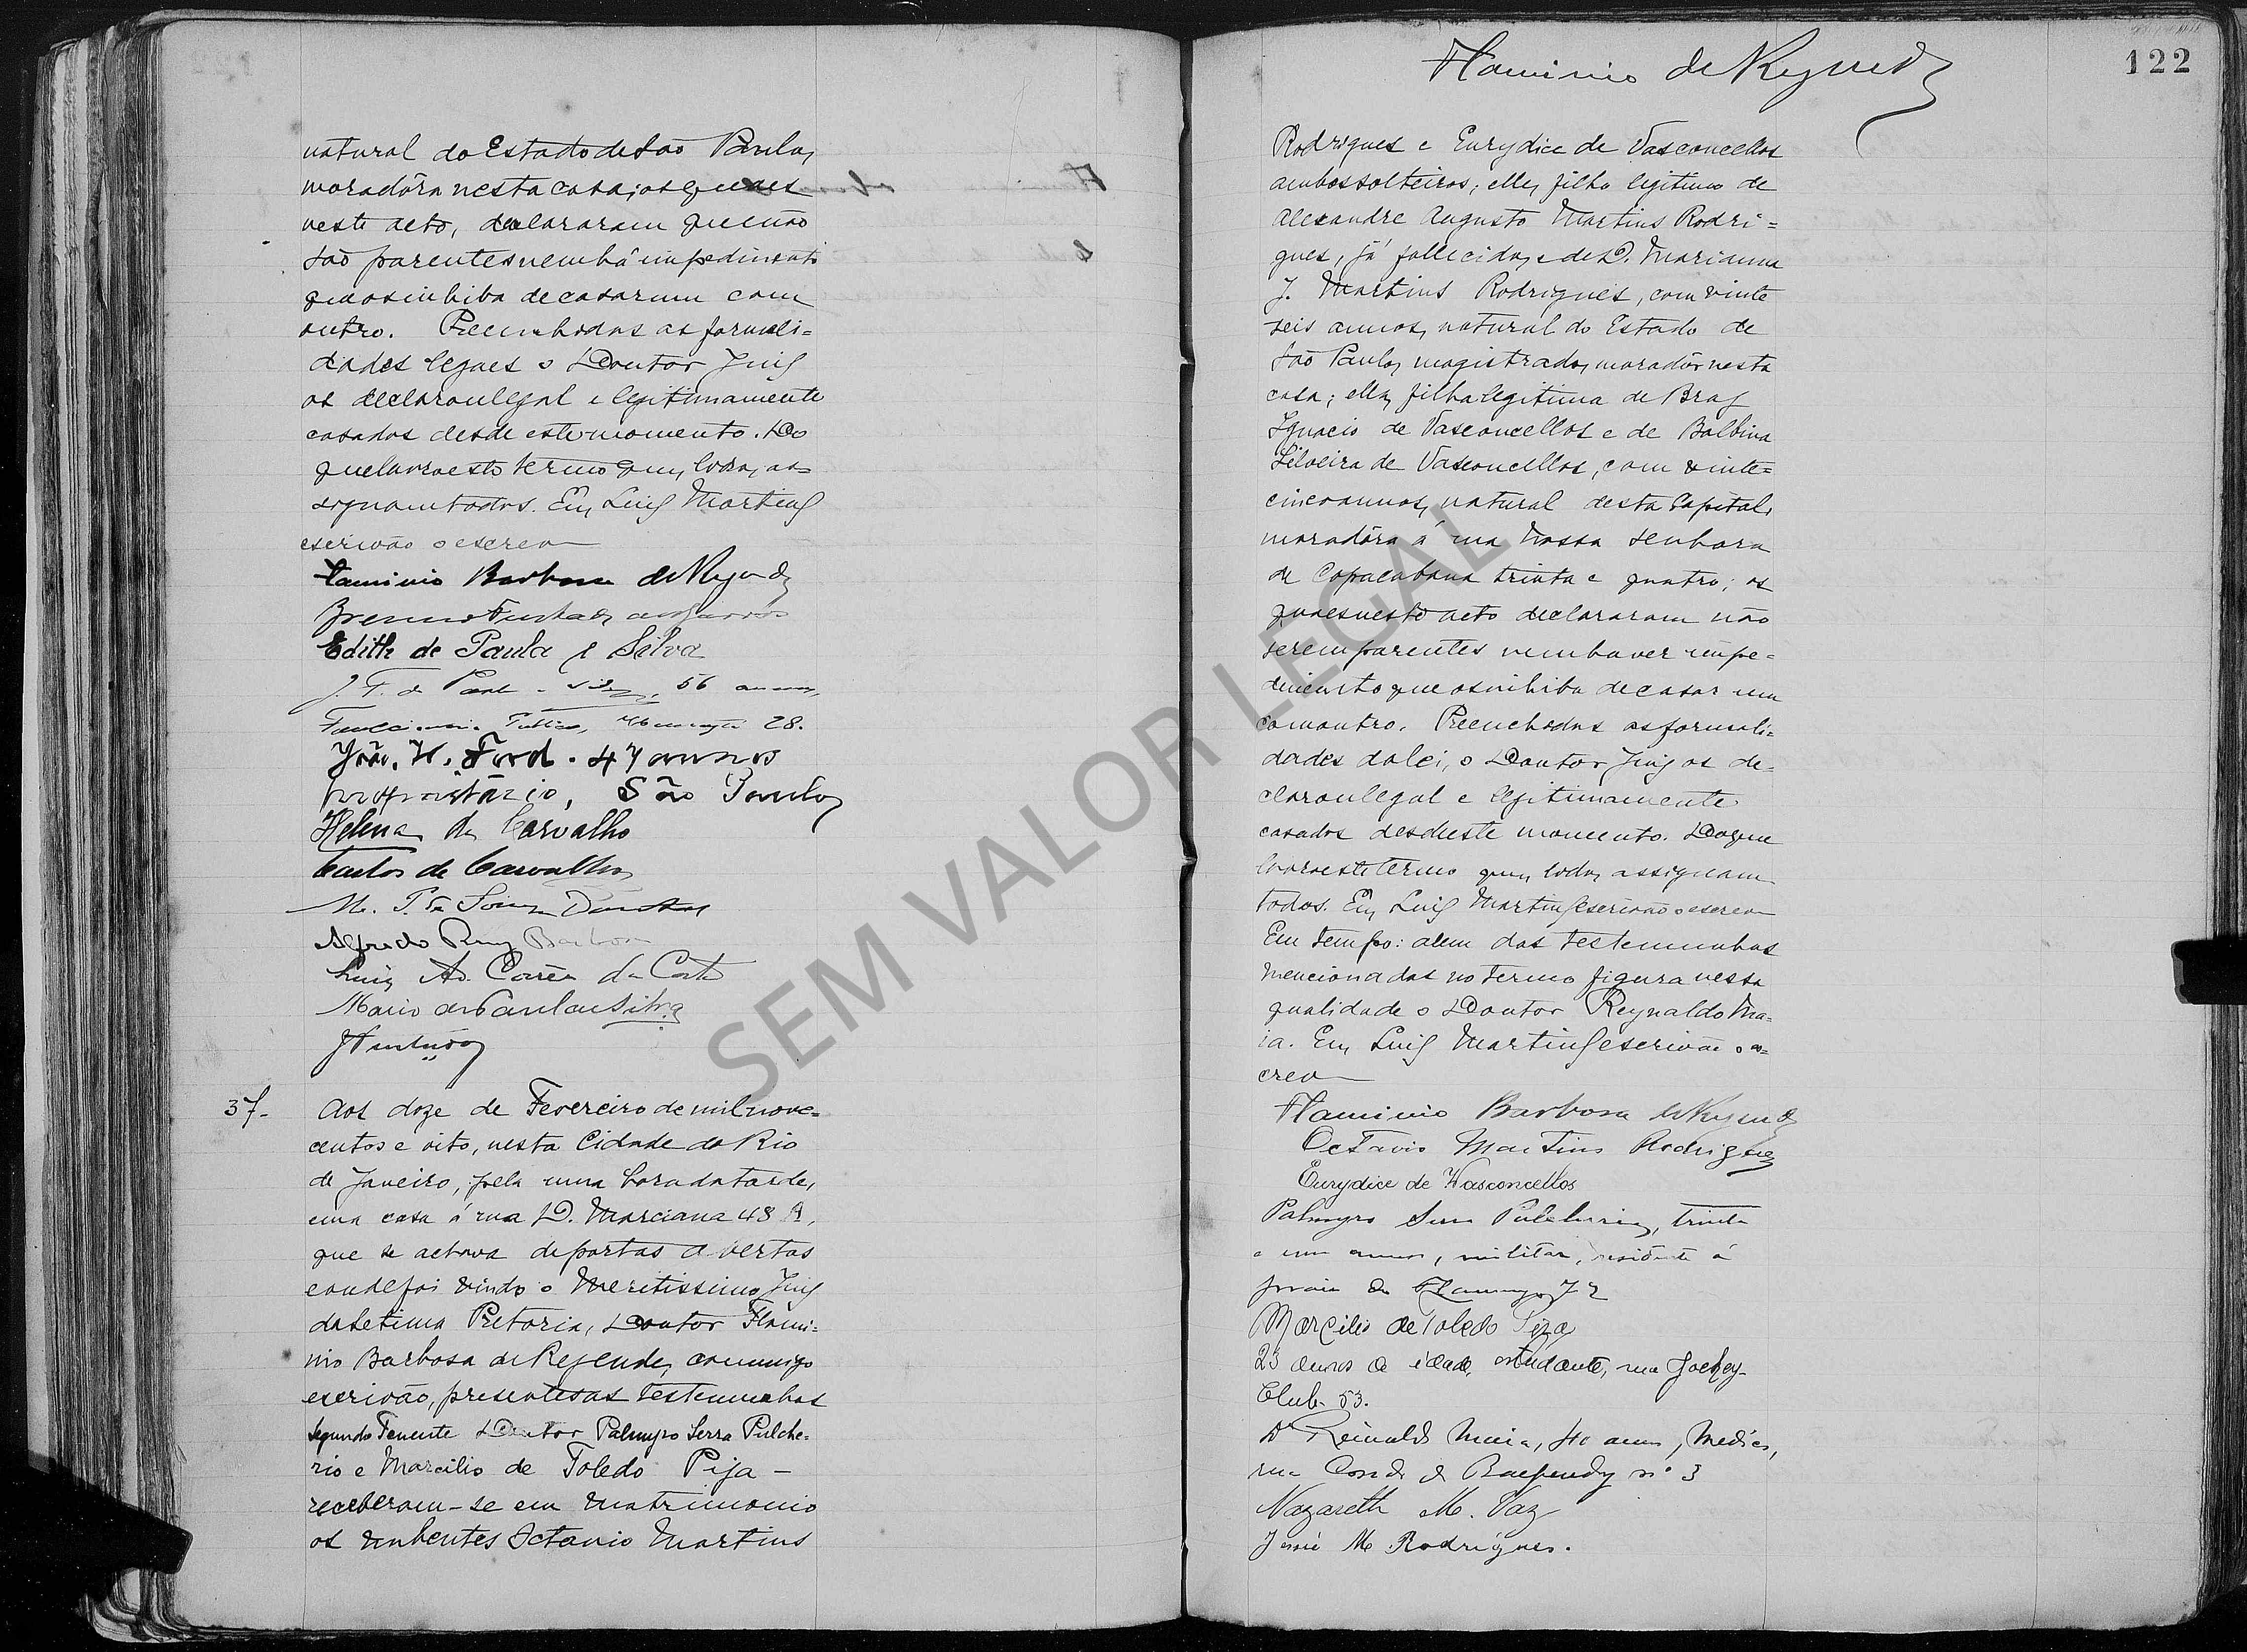 natural do Estado de São Paulo,
moradôra nesta casa; os quaes
neste acto, declararam que não
são parentes nem há impedimento
que os inhiba de casar um com
outro. Preenchidas as formali=
dades legaes o Doutor Juiz
os declarou legal e legitimamente
casados desde este momento. Do
que lavro este termo que, lido, as=
signam todos. Eu, Luiz Martins
escrivão o escrevi
Flaminio Barbosa de Rezende
Edith de Paula e Silva
J. F. de Paula e Silva, 56 annos,
Funccionario Publico, 28.
João. H. Ford. 47 annos
proprietário, São Paulo
Helena de Carvalho
Carlos de Carvalho
M. P. de Souza Dantas
Alfredo Ruy Barbosa
Luiz Ad. Corrêa da Costa
Mario de Paula e Silva
37-
Aos doze de Fevereiro de mil nove=
centos e oito, nesta Cidade do Rio
de Janeiro, pela uma hora da tarde,
em a casa á rua D. Marciana 48 A,
que se achava de portas abertas
e onde foi vindo o Meritissimo Juiz
da Setima Pretoria, Doutor Flami=
nio Barbosa de Rezende, commigo
escrivão, presentes as testemunhas
Segundo Tenente Doutor Palmyro Serra Pulche=
rio e Marcilio de Toledo Piza -
receberam-se em matrimonio
os nubentes Octavio Martins
Flaminio de Rezende
122
Rodrigues e Eurydice de Vasconcellos
ambos solteiros; elle, filho legitimo de
Alexandre Augusto Martins Rodri=
gues, já fallecido, e de D. Marianna
J. Martins Rodrigues, com vinte
seis annos, natural do Estado de
São Paulo, magistrado, moradôr nesta
casa; ella, filha legitima de Braz
Ignacio de Vasconcellos e de Balbina
Silveira de Vasconcellos, com vinte=
cinco annos, natural desta Capital,
moradôra á rua Nossa Senhora
de Copacabana trinta e quatro; os
quaes neste acto declararam não
serem parentes nem haver impe=
dimento que os inhiba de casar um
com outro. Preenchidas as formali=
dades da lei, o Doutor Juiz os de=
clarou legal e legitimamente
casados desde este momento. Do que
lavro este termo que, lido, assignam
todos. Eu, Luiz Martins escrivão o escrevi
Em tempo: alem das testemunhas
mencionadas no termo figura nessa
qualidade o Doutor Reynaldo Ma=
ia. Eu, Luiz Martins escrivão o es=
crevi
Flaminio Barbosa de Rezende
Octavio Martins Rodrigues
Eurydice de Vasconcellos
Palmyro Serra Pulcherio, trinta
e um annos, militar, residente á
praia do Flamengo 72
Marcilio de Toledo Piza
23 annos de idade, estudante, rua Jockey-
Club. 53.
Dr Reinaldo Maia, 40 annos, Medico,
rua Conde de Baependy nº 3
Nazareth M. Vaz
José M Rodrigues.
SEM VALOR LEGAL